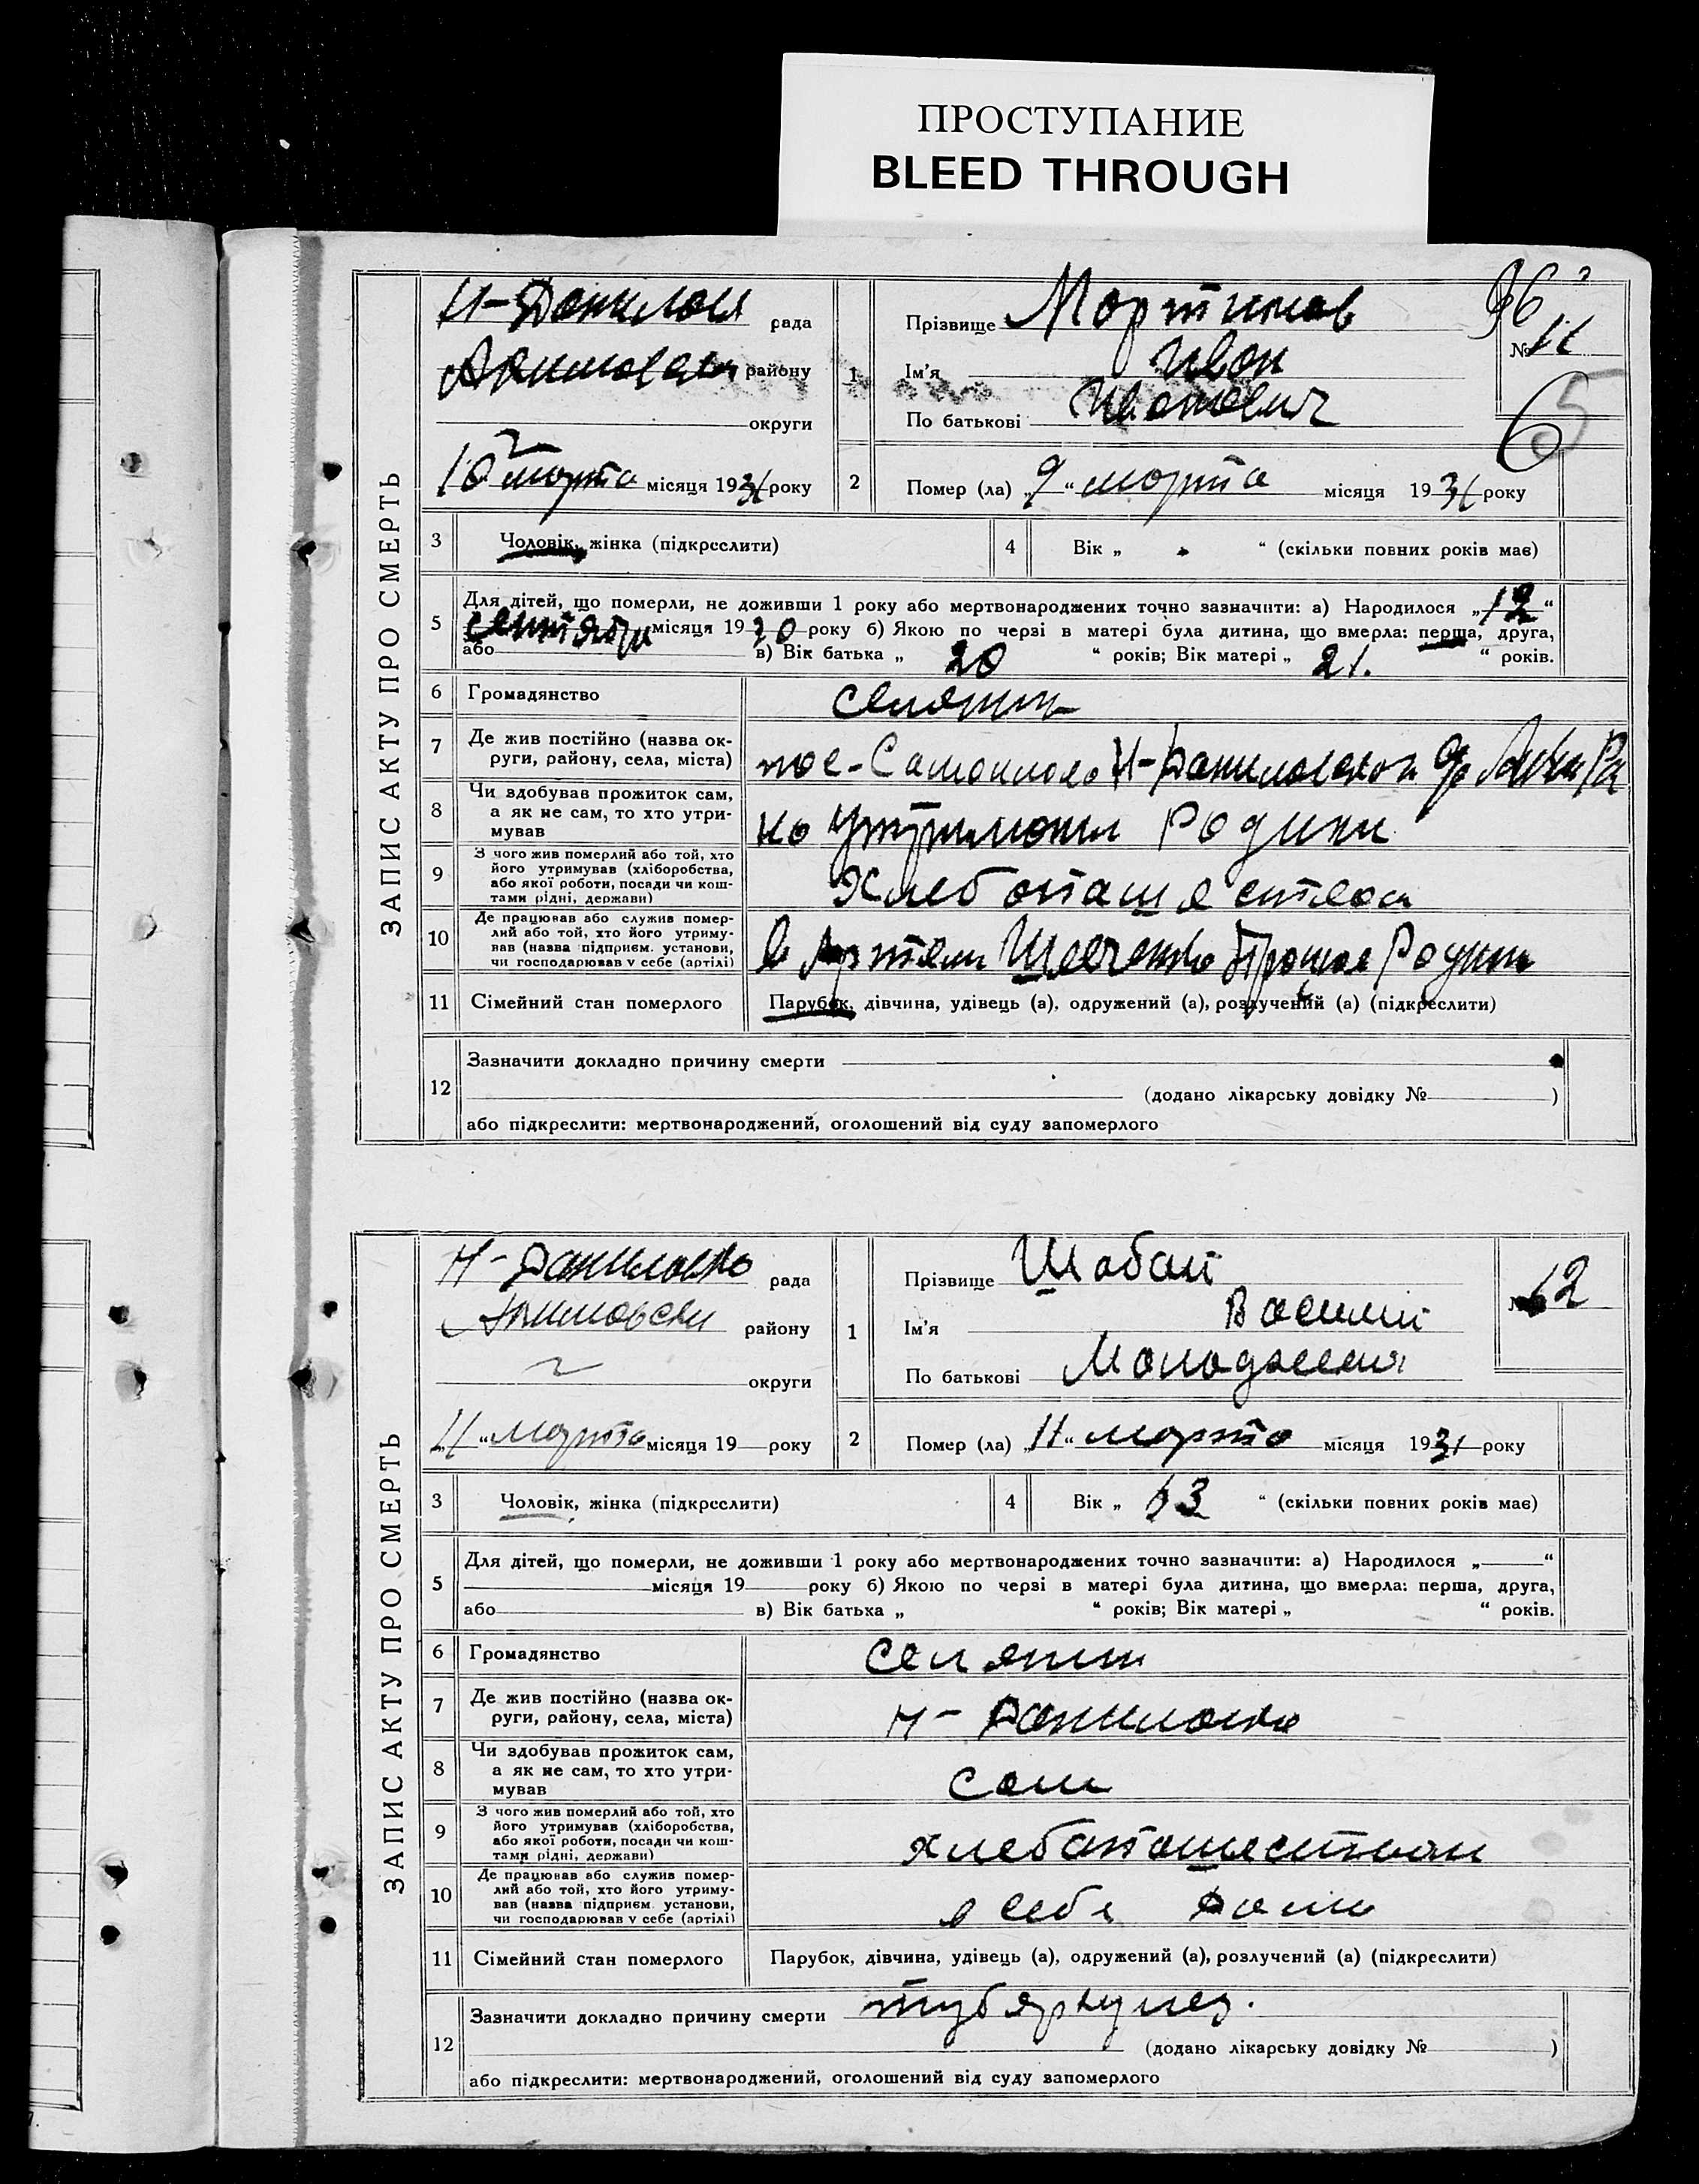 ПРОСТУПАНИЕ
BLEED THROUGH
ЗАПИС АКТУ ПРО СМЕРТЬ
рада
району
округи
10 марта місяця 1931 року
1
Прізвище Мортинов
Ім'я Иван
По батькові Иванович
96
№ 11
65
2
Помер (ла) „9“ марта місяця 1931 року
3
Чоловік, жінка (підкреслити)
4
Вік „ “ (скільки повних років має)
5
Для дітей, що померли, не доживши 1 року або мертвонароджених точно зазначити: а) Народилося „12“
місяця 1930 року б) Якою по черзі в матері була дитина, що вмерла: перша, друга,
або в) Вік батька „ 20 “ років; Вік матері „ 21. “ років.
6
Громадянство
селянин
7
Де жив постійно (назва ок-
руги, району, села, міста)
8
Чи здобував прожиток сам,
а як не сам, то хто утри-
мував
на утримани Родини
9
З чого жив померлий або той, хто
його утримував (хліборобства,
або якої роботи, посади чи кош-
тами рідні, держави)
10
Де працював або служив помер-
лий або той, хто його утриму-
вав (назва підприєм. установи,
чи господарював у себе (артілі)
в Артели Шевченко
11
Сімейний стан померлого
Парубок, дівчина, удівець (а), одружений (а), розлучений (а) (підкреслити)
12
Зазначити докладно причину смерти
(додано лікарську довідку № )
або підкреслити: мертвонароджений, оголошений від суду запомерлого
ЗАПИС АКТУ ПРО СМЕРТЬ
Н-Даниловка рада
району
округи
„11“ марта місяця 19 року
1
Прізвище Шабай
Ім'я Василий
По батькові
№ 12
2
Помер (ла) „11“ марта місяця 1931 року
3
Чоловік, жінка (підкреслити)
4
Вік „ 63 “ (скільки повних років має)
5
Для дітей, що померли, не доживши 1 року або мертвонароджених точно зазначити: а) Народилося „ “
місяця 19 року б) Якою по черзі в матері була дитина, що вмерла: перша, друга,
або в) Вік батька „ “ років; Вік матері „ “ років.
6
Громадянство
селянин
7
Де жив постійно (назва ок-
руги, району, села, міста)
Н-Даниловка
8
Чи здобував прожиток сам,
а як не сам, то хто утри-
мував
сам
9
З чого жив померлий або той, хто
його утримував (хліборобства,
або якої роботи, посади чи кош-
тами рідні, держави)
хлебапашеством
10
Де працював або служив помер-
лий або той, хто його утриму-
вав (назва підприєм. установи,
чи господарював у себе (артілі)
11
Сімейний стан померлого
Парубок, дівчина, удівець (а), одружений (а), розлучений (а) (підкреслити)
12
Зазначити докладно причину смерти тубяркулез.
(додано лікарську довідку № )
або підкреслити: мертвонароджений, оголошений від суду запомерлого